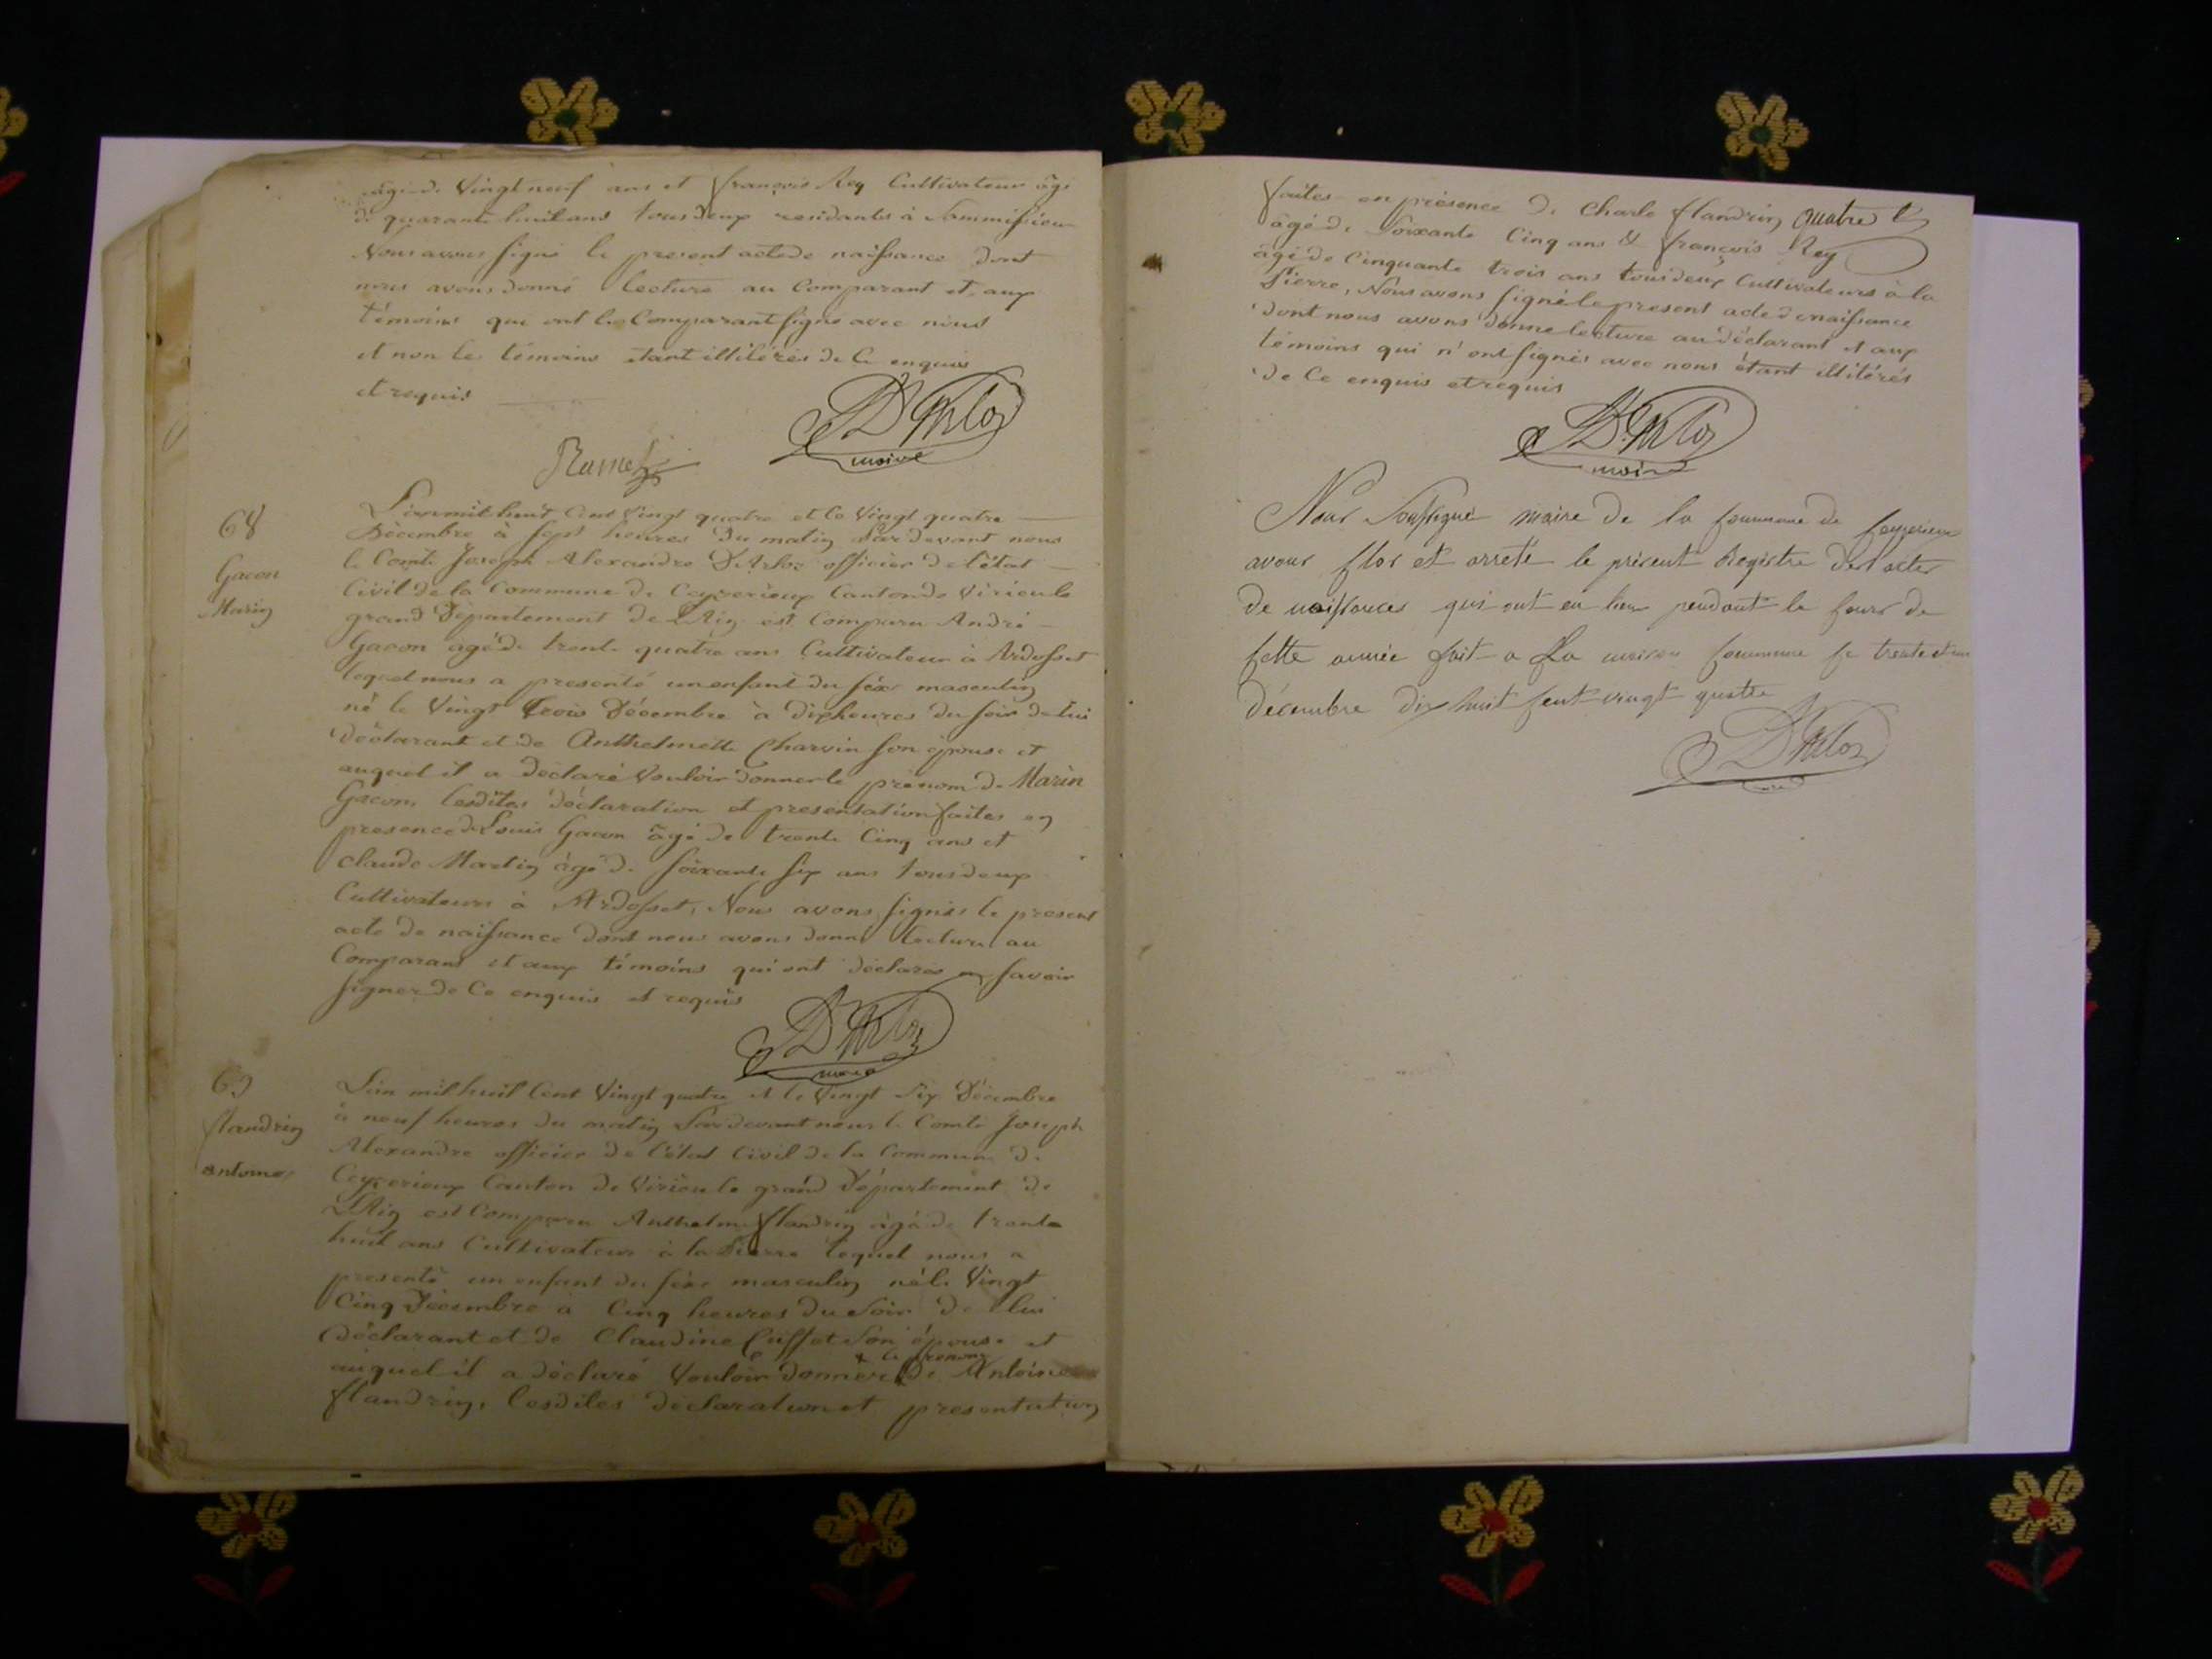 âgé de Vingt neuf ans et françois Rey Cultivateur âgé
de quarante huit ans tous deux residants à Sammisieu
Nous avons signé le present acte de naissance dont
nous avons donné lecture au Comparant et aux
témoins qui ont le Comparant signé avec nous
et non les témoins étant illitérés de Ce enquis
et requis
D'Arloz
maire
Ramel
68
Gacon
Marin
L'an mil huit Cent Vingt quatre et le Vingt quatre
Décembre à sept heures du matin Pardevant nous
le Comte Joseph Alexandre D'Arloz officier de l'état
Civil de la Commune de Ceyzerieux Canton de Virieu le
grand Département de L'Ain est Comparu André
Gacon âgé de trente quatre ans Cultivateur à Ardosset
lequel nous a presenté un enfant du séxe masculin
né le Vingt trois Décembre à dix heures du soir de lui
Déclarant et de Anthelmette Charvin son épouse et
auquel il a déclaré Vouloir donner le prénom de Marin
Gacon, lesdites déclaration et présentation faites en
presence de Louis Gacon âgé de trente Cinq ans et
Claude Martin âgé de soixante six ans tous deux
Cultivateurs à Ardosset, Nous avons signés le present
acte de naissance dont nous avons donné lecture au
Comparant et aux témoins qui ont déclarés savoir
signer de Ce enquis et requis
D'Arloz
maire
69
flandrin
antoine
L'an mil huit Cent Vingt quatre et le Vingt Six Décembre
à neuf heures du matin Pardevant nous le Comte Joseph
Alexandre officier de l'état Civil de la Commune de
Ceyzerieux Canton de Virieu le grand Département de
L'Ain est Comparu Anthelme flandrin âgé de trente
huit ans Cultivateur à la Pierre lequel nous a
presenté un enfant du séxe masculin né le Vingt
Cinq Décembre à Cinq heures du Soir de lui
Déclarant et de Claudine Son épouse et
le prénom
auquel il a déclaré Vouloir donner de Antoine
flandrin, lesdites déclaration et presentation
faites en présence de Charle flandrin quatre
âgé de Soixante Cinq ans & françois Rey
âgé de Cinquante trois ans tous deux Cultivateurs à la
Pierre, Nous avons signé le present acte de naissance
dont nous avons donné lecture au déclarant et aux
témoins qui n'ont signés avec nous étant illitérés
de Ce enquis et requis
D'Arloz
maire
Nous Soussigné maire de la commune de Ceyzerieux
avons clos et arreté le présent Registre des actes
de naissances qui ont eu lieu pendant le cours de
cette année fait a La maison commune le trente et un
décembre dix huit cent vingt quatre
D'Arloz